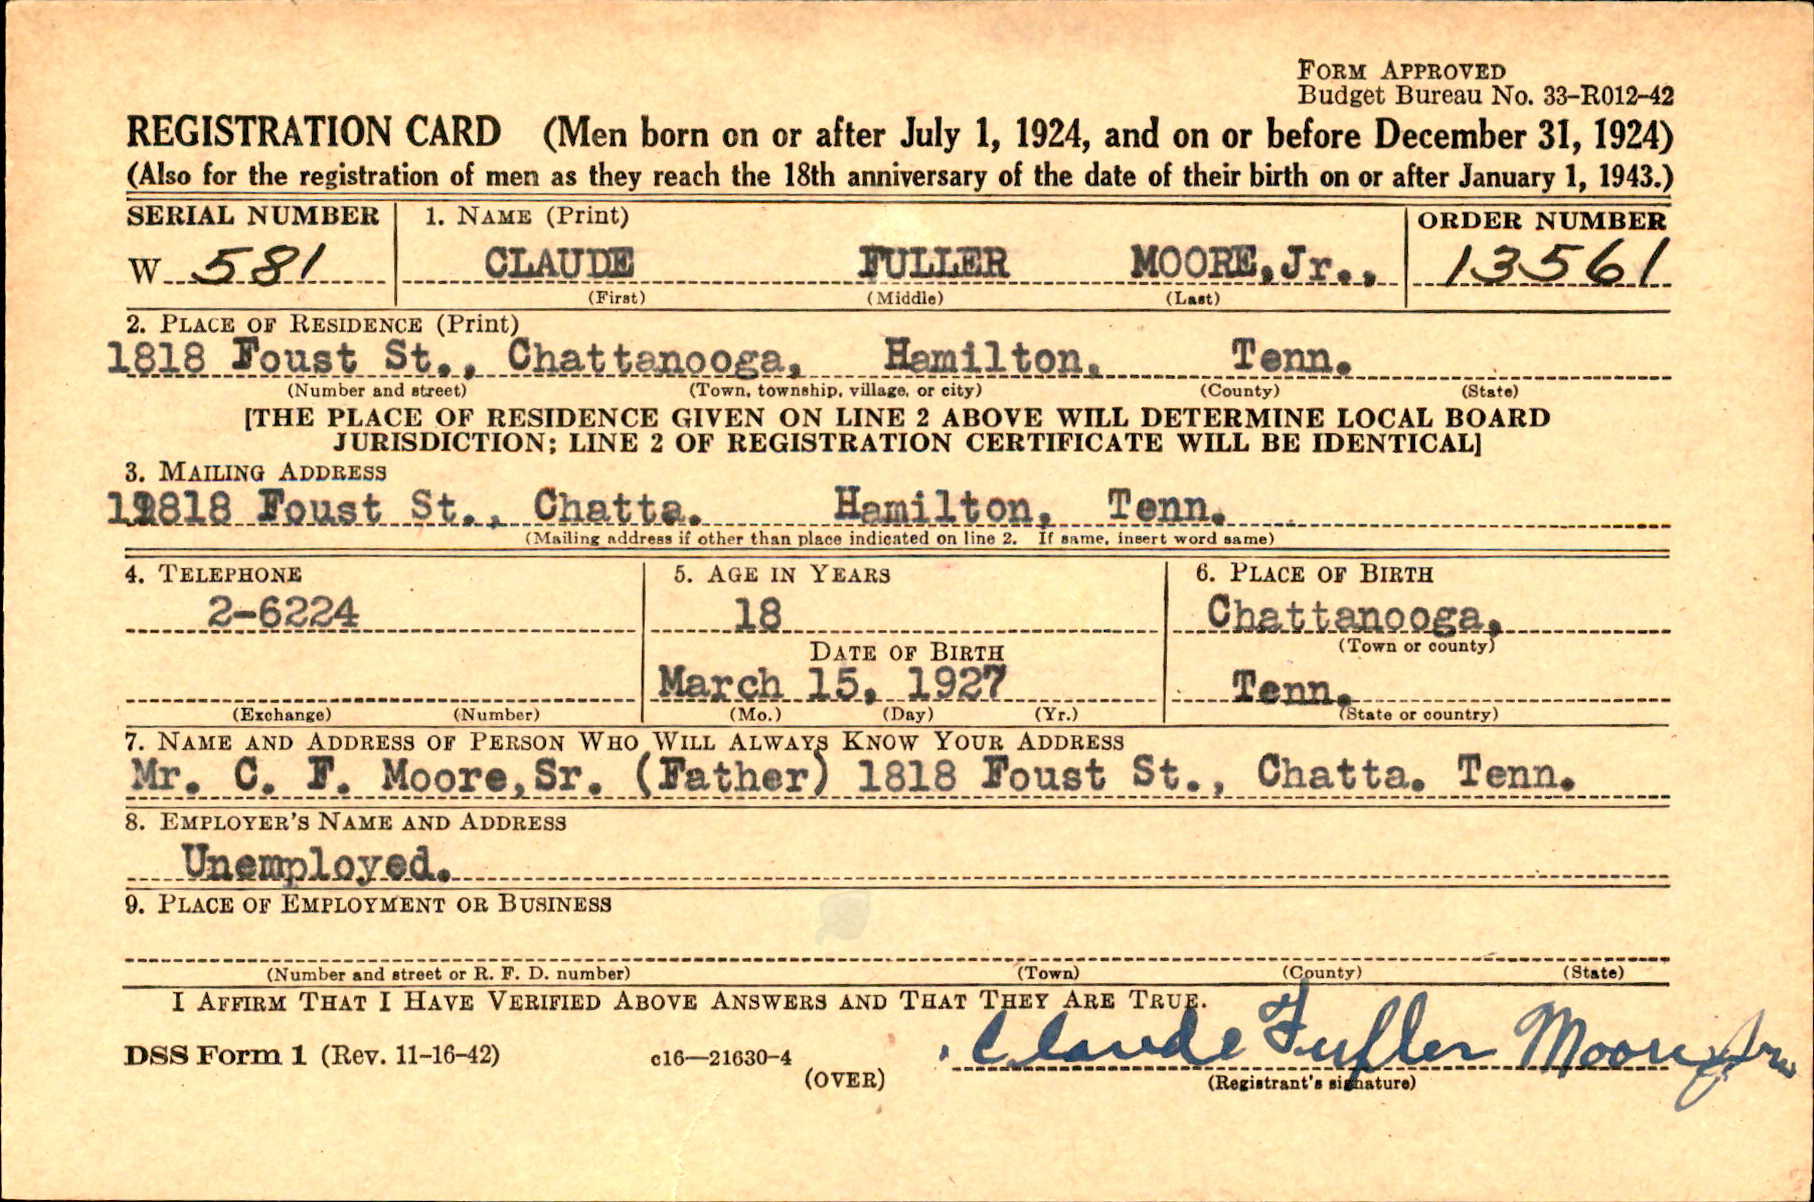 FORM APPROVED
Budget Bureau No. 33-R012-42
REGISTRATION CARD (Men born on or after July 1, 1924, and on or before December 31, 1924)
(Also for the registration of men as they reach the 18th anniversary of the date of their birth on or after January 1, 1943.)
SERIAL NUMBER 1. NAME (Print) ORDER NUMBER
W 581 CLAUDE FULLER MOORE,Jr., 13561
(First) (Middle) (Last)
2. PLACE OF RESIDENCE (Print)
1818 Foust St., Chattanooga, Hamilton, Tenn.
(Number and street) (Town, township, village, or city) (County) (State)
[THE PLACE OF RESIDENCE GIVEN ON LINE 2 ABOVE WILL DETERMINE LOCAL BOARD
JURISDICTION; LINE 2 OF REGISTRATION CERTIFICATE WILL BE IDENTICAL]
3. MAILING ADDRESS
1818 Foust St., Chatta. Hamilton, Tenn.
(Mailing address if other than place indicated on line 2. If same, insert word same)
4. TELEPHONE 5. AGE IN YEARS 6. PLACE OF BIRTH
2-6224 18 Chattanooga,
DATE OF BIRTH (Town or county)
March 15, 1927 Tenn.
(Exchange) (Number) (Mo.) (Day) (Yr.) (State or country)
7. NAME AND ADDRESS OF PERSON WHO WILL ALWAYS KNOW YOUR ADDRESS
Mr. C. F. Moore,Sr. (Father) 1818 Foust St., Chatta. Tenn.
8. EMPLOYER'S NAME AND ADDRESS
Unemployed.
9. PLACE OF EMPLOYMENT OR BUSINESS
(Number and street or R. F. D. number) (Town) (County) (State)
I AFFIRM THAT I HAVE VERIFIED ABOVE ANSWERS AND THAT THEY ARE TRUE.
DSS Form 1 (Rev. 11-16-42) c16—21630-4 Claude Fuller Moore, Jr.
(OVER) (Registrant's signature)